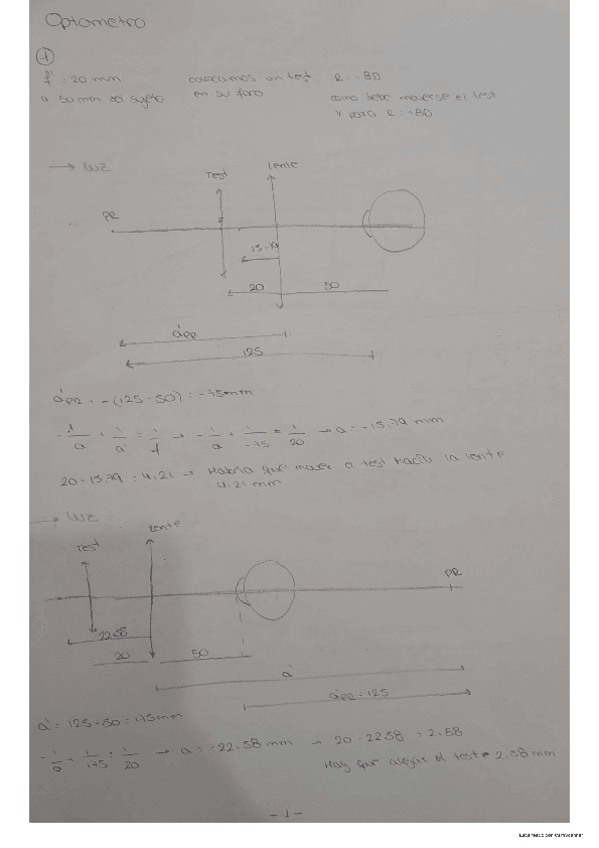 Optometro
1
f' = 20 mm colocamos un test R = -8D
a 50 mm del sujeto en su foco como debe moverse el test
y para R = +8D
→ LUZ
Test
Lente
PR
15.79
20 50
a'PR
125
a'PR = -(125-50) = -75mm
-1/a + 1/a' = 1/f' → -1/a + 1/-75 = 1/20 → a = -15.79 mm
20-15.79 = 4.21 → Habría que mover el test hacia la lente
4.21 mm
→ LUZ
Lente
Test
PR
22.58
20 50
a'
a'PR = 125
a' = 125+50 = 175mm
-1/a + 1/175 = 1/20 → a = -22.58 mm → 20-22.58 = 2.58
Hay que alejar el test 2.58 mm
- 1 -